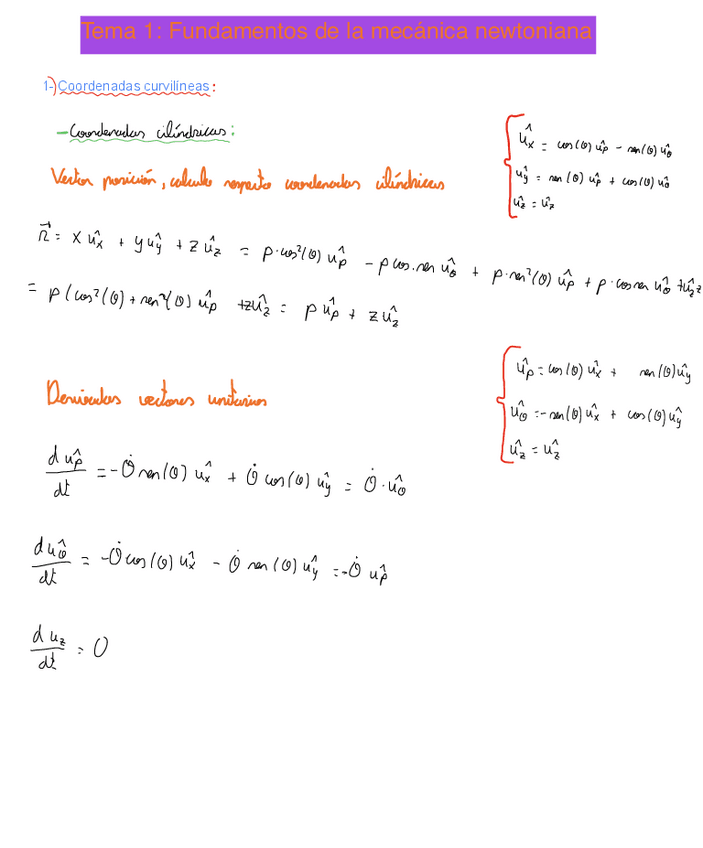 Tema 1: Fundamentos de la mecánica newtoniana
1-) Coordenadas curvilíneas:
- Coordenadas cilíndricas:
û_x = cos(θ) û_ρ - sen(θ) û_θ
û_y = sen(θ) û_ρ + cos(θ) û_θ
û_z = û_z
Vector posición, calculo respecto coordenadas cilíndricas
r⃗ = x û_x + y û_y + z û_z = ρ·cos²(θ) û_ρ - ρ cos·sen û_θ + ρ·sen²(θ) û_ρ + ρ·cos sen û_θ + zû_z
= ρ(cos²(θ) + sen²(θ)) û_ρ + zû_z = ρ û_ρ + z û_z
û_ρ = cos(θ) û_x + sen(θ) û_y
û_θ = -sen(θ) û_x + cos(θ) û_y
û_z = û_z
Derivadas vectores unitarios
d û_ρ/dt = -θ̇ sen(θ) û_x + θ̇ cos(θ) û_y = θ̇·û_θ
d û_θ/dt = -θ̇ cos(θ) û_x - θ̇ sen(θ) û_y = -θ̇ û_ρ
d u_z/dt = 0